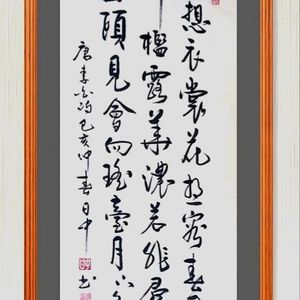 想衣裳花想容春
檻露華濃若非群
頭見會向瑤臺月下
唐李白詩己亥仲春日中
书